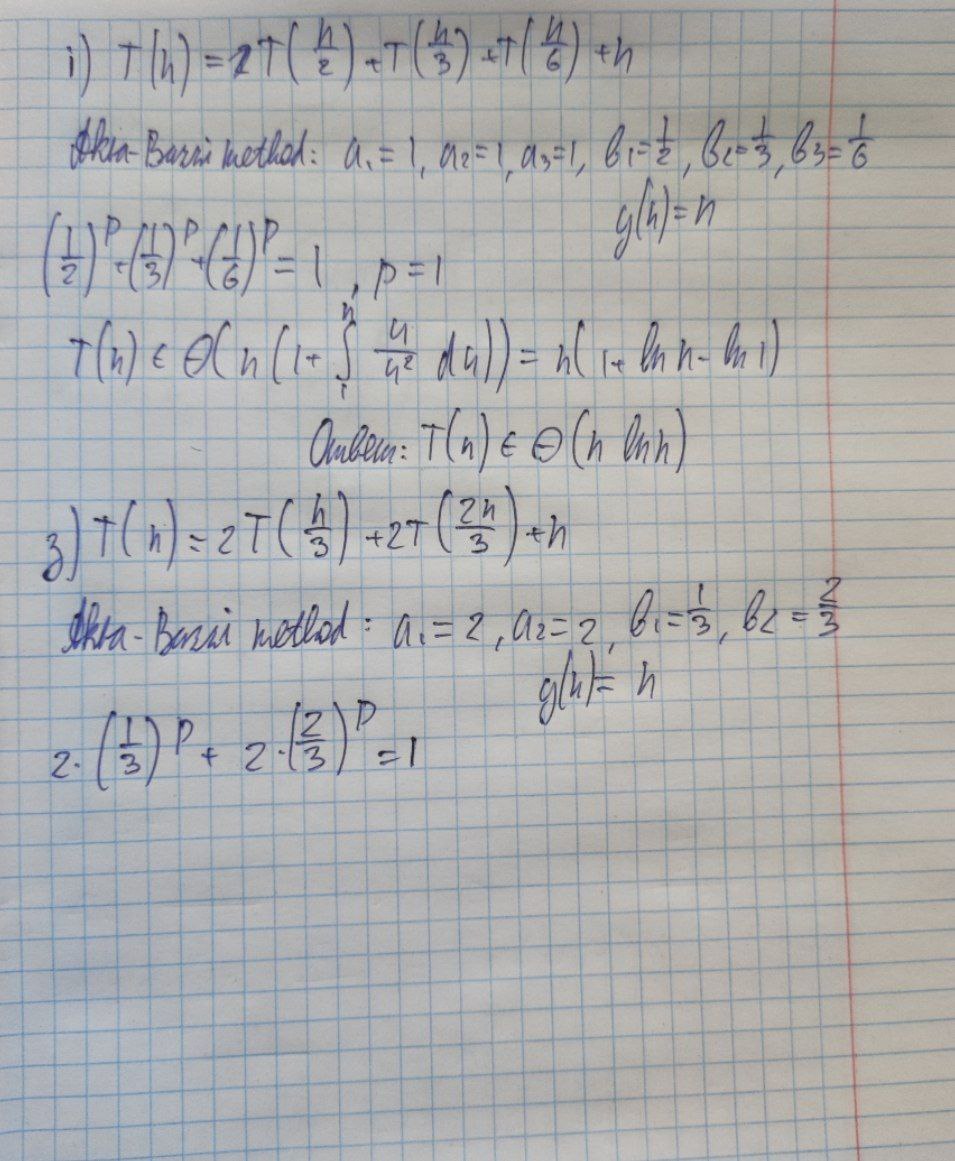 1) T(n) = 2T(n/2) + T(n/3) + T(n/6) + n
Akra-Bazzi method: a₁ = 1, a₂ = 1, a₃ = 1, b₁ = 1/2, b₂ = 1/3, b₃ = 1/6
g(n) = n
(1/2)^p + (1/3)^p + (1/6)^p = 1, p = 1
T(n) ∈ Θ(n(1 + ∫₁ⁿ u/u² du)) = n(1 + ln n - ln 1)
Ответ: T(n) ∈ Θ(n ln n)
3) T(n) = 2T(n/3) + 2T(2n/3) + n
Akra-Bazzi method: a₁ = 2, a₂ = 2, b₁ = 1/3, b₂ = 2/3
g(n) = n
2·(1/3)^p + 2·(2/3)^p = 1